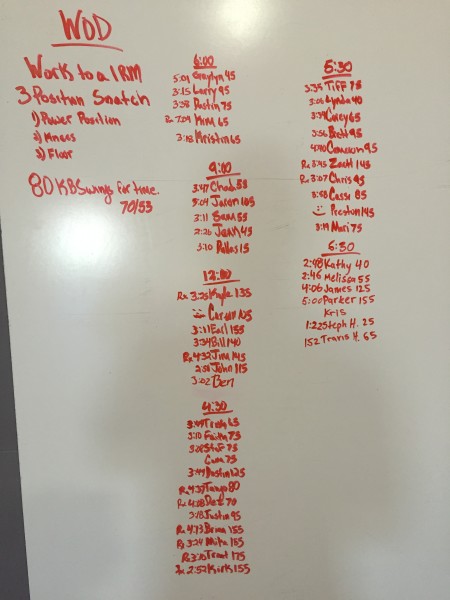 WOD
Work to a 1RM
3 Position Snatch
1) Power Position
2) Knees
3) Floor
80 KB Swings for time.
70/53
6:00
5:01 Gaylyn 45
3:15 Larry 95
3:38 Dustin 75
Rx 7:09 Kim 65
3:18 Kristin 65
9:00
3:47 Chad 55
5:04 Jason 105
3:11 Sam 55
2:26 Jenn 45
3:10 Dallas 15
12:00
Rx 3:25 Kyle 135
Carson 105
3:11 Earl 155
3:34 Bill 140
Rx 4:32 Jim 145
2:50 John 115
3:02 Ben
4:30
3:49 65
3:10 Faith 75
3:08 Stef 75
Cam 75
3:49 Dustin 125
Rx 4:37 Tango 80
Rx 4:08 Dez 70
3:18 Justin 95
Rx 4:13 Brian 155
Rx 3:24 Mike 155
Rx Trent 175
Rx 2:52 Kirk 155
5:30
3:35 Tiff 75
3:05 Lynda 40
3:34 Corey 65
3:56 Brett 95
4:40 Cameron 95
Rx 3:45 Zach 145
Rx 3:07 Chris 95
3:58 Cassi 85
Preston 145
3:19 Mari 75
6:30
2:48 Kathy 40
2:46 Melissa 55
4:06 James 125
5:00 Parker 155
Kris
1:22 Steph H. 25
1:52 Travis H. 65